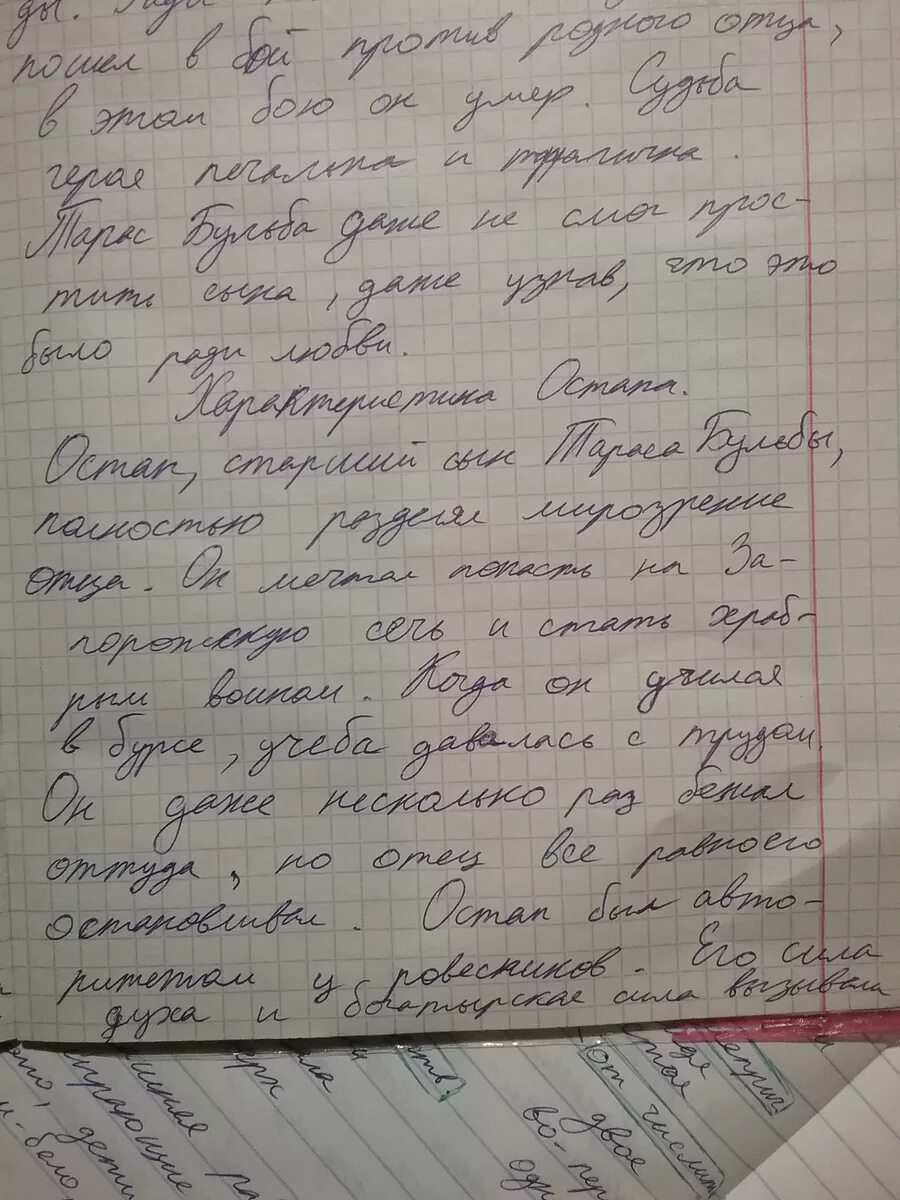 ды. Ради
пошел в бой против родного отца,
в этом бою он умер. Судьба
героя печальна и трагична.
Тарас Бульба даже не смог прос-
тить сына, даже узнав, что это
было ради любви.
Характеристика Остапа.
Остап, старший сын Тараса Бульбы,
полностью разделял мирозрение
отца. Он мечтал попасть на За-
порожскую сечь и стать храб-
рым воином. Когда он учился
в бурсе, учеба давалась с трудом.
Он даже несколько раз бежал
оттуда, но отец все равно его
остановливал. Остап был авто-
ритетом у ровесников. Его сила
духа и богатырская сила вызывала
от числит
двое
во-пер